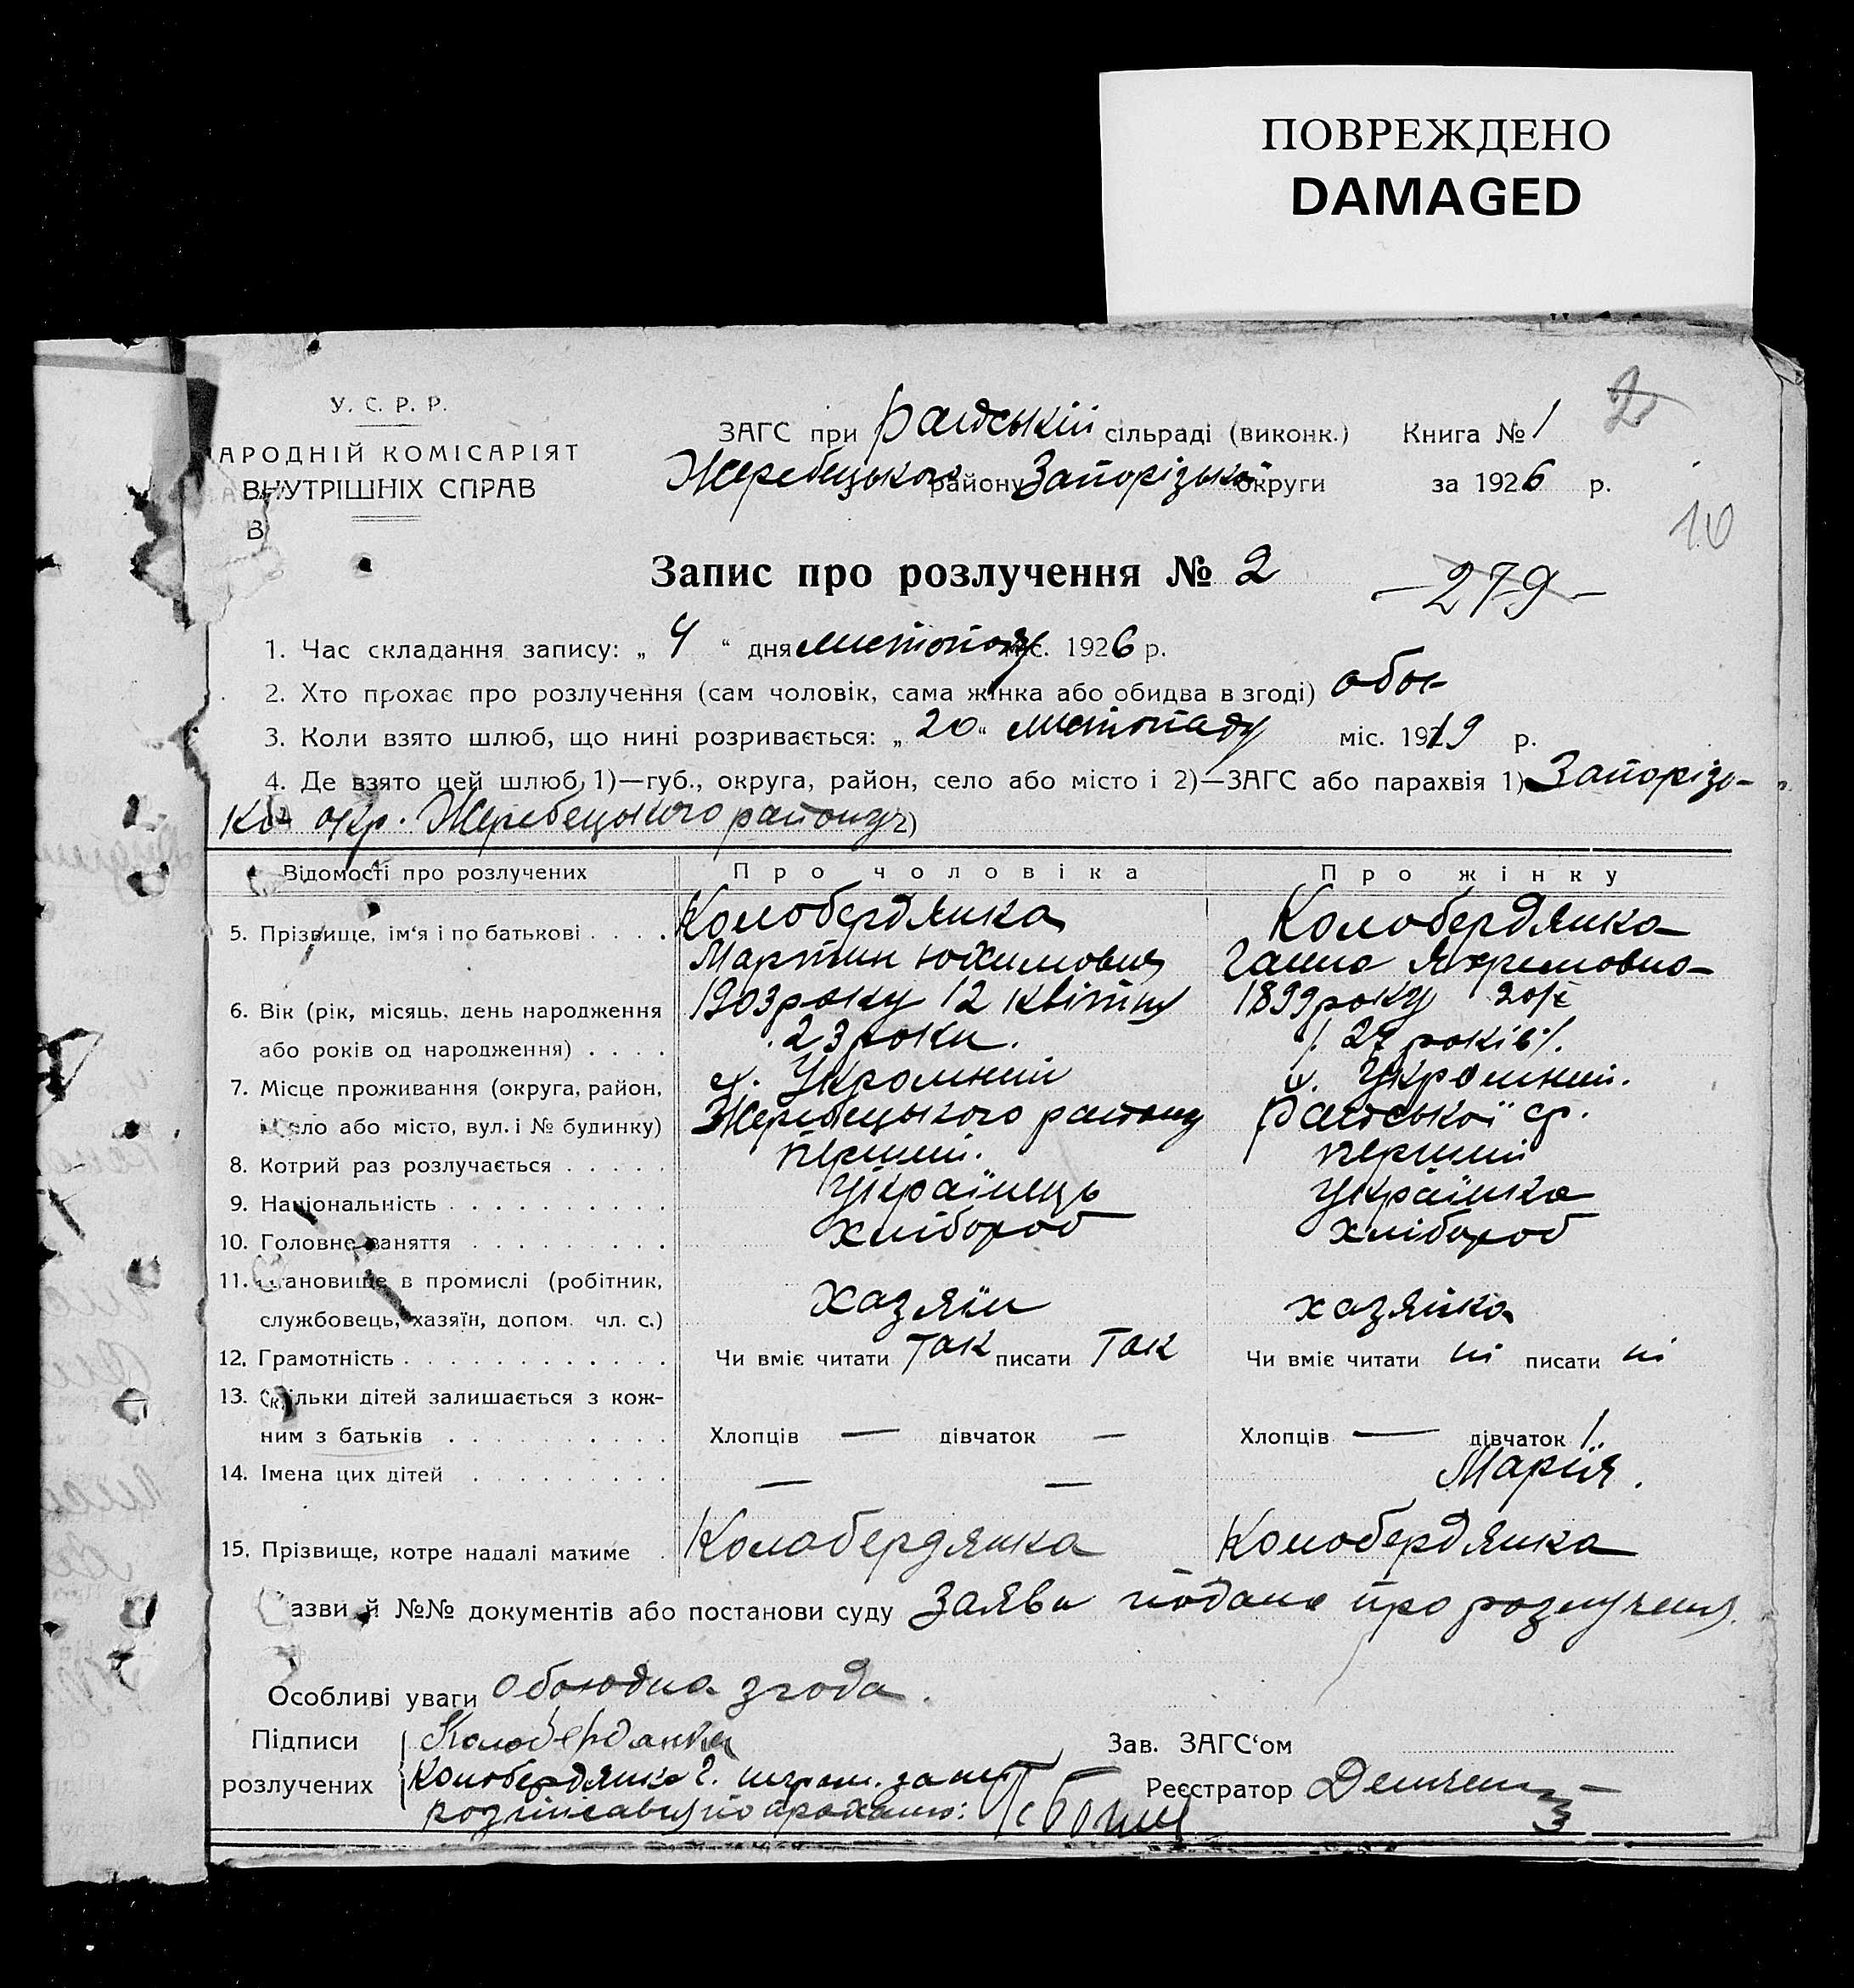 ПОВРЕЖДЕНО
DAMAGED
У. С. Р. Р.
АРОДНІЙ КОМІСАРІЯТ
ВНУТРІШНІХ СПРАВ
В
ЗАГС при Райській сільраді (виконк.) Книга № 1
2
Жеребецького району Запорізької округи за 1926 р.
10
Запис про розлучення № 2
– 279 –
1. Час складання запису: „ 4 “ дня листопаду міс. 1926 р.
2. Хто прохає про розлучення (сам чоловік, сама жінка або обидва в згоді) обоє
3. Коли взято шлюб, що нині розривається: „ 20 “ листопаду міс. 1919 р.
4. Де взято цей шлюб, 1)—губ., округа, район, село або місто і 2)—ЗАГС або парахвія 1) Запорізь-
кої окр. Жеребецького району 2)
Відомості про розлучених Про чоловіка Про жінку
5. Прізвище, ім‘я і по батькові . . . . Колобердянка Колобердянка
Мартин Юхимович Ганна Яхремовна
6. Вік (рік, місяць, день народження 1903 року 12 квітня 1899 року 20/X
або років од народження) . . . . 23 роки. /. 27 років ./.
7. Місце проживання (округа, район, х. Укромний х. Укромний.
село або місто, вул. і № будинку) Жеребецького району Райської ср.
8. Котрий раз розлучається . . . . . перший. перший
9. Національність . . . . . . . . . . Українець Українка
10. Головне заняття . . . . . . . . . хлібороб хлібороб
11. Становище в промислі (робітник,
службовець, хазяїн, допом. чл. с.) хазяїн хазяйка
12. Грамотність . . . . . . . . . . . . Чи вміє читати так писати так Чи вміє читати ні писати ні
13. Скільки дітей залишається з кож-
ним з батьків . . . . . . . . . . Хлопців — дівчаток — Хлопців — дівчаток 1.
14. Імена цих дітей . . . . . . . . . — — Марія.
15. Прізвище, котре надалі матиме . Колобердянка Колобердянка
азви й №№ документів або постанови суду Заява подана про розлучення.
Особливі уваги обоюдна згода.
Підписи Колобердянка Зав. ЗАГС‘ом
розлучених Колобердянка Г. Реєстратор
розписався по проханню: